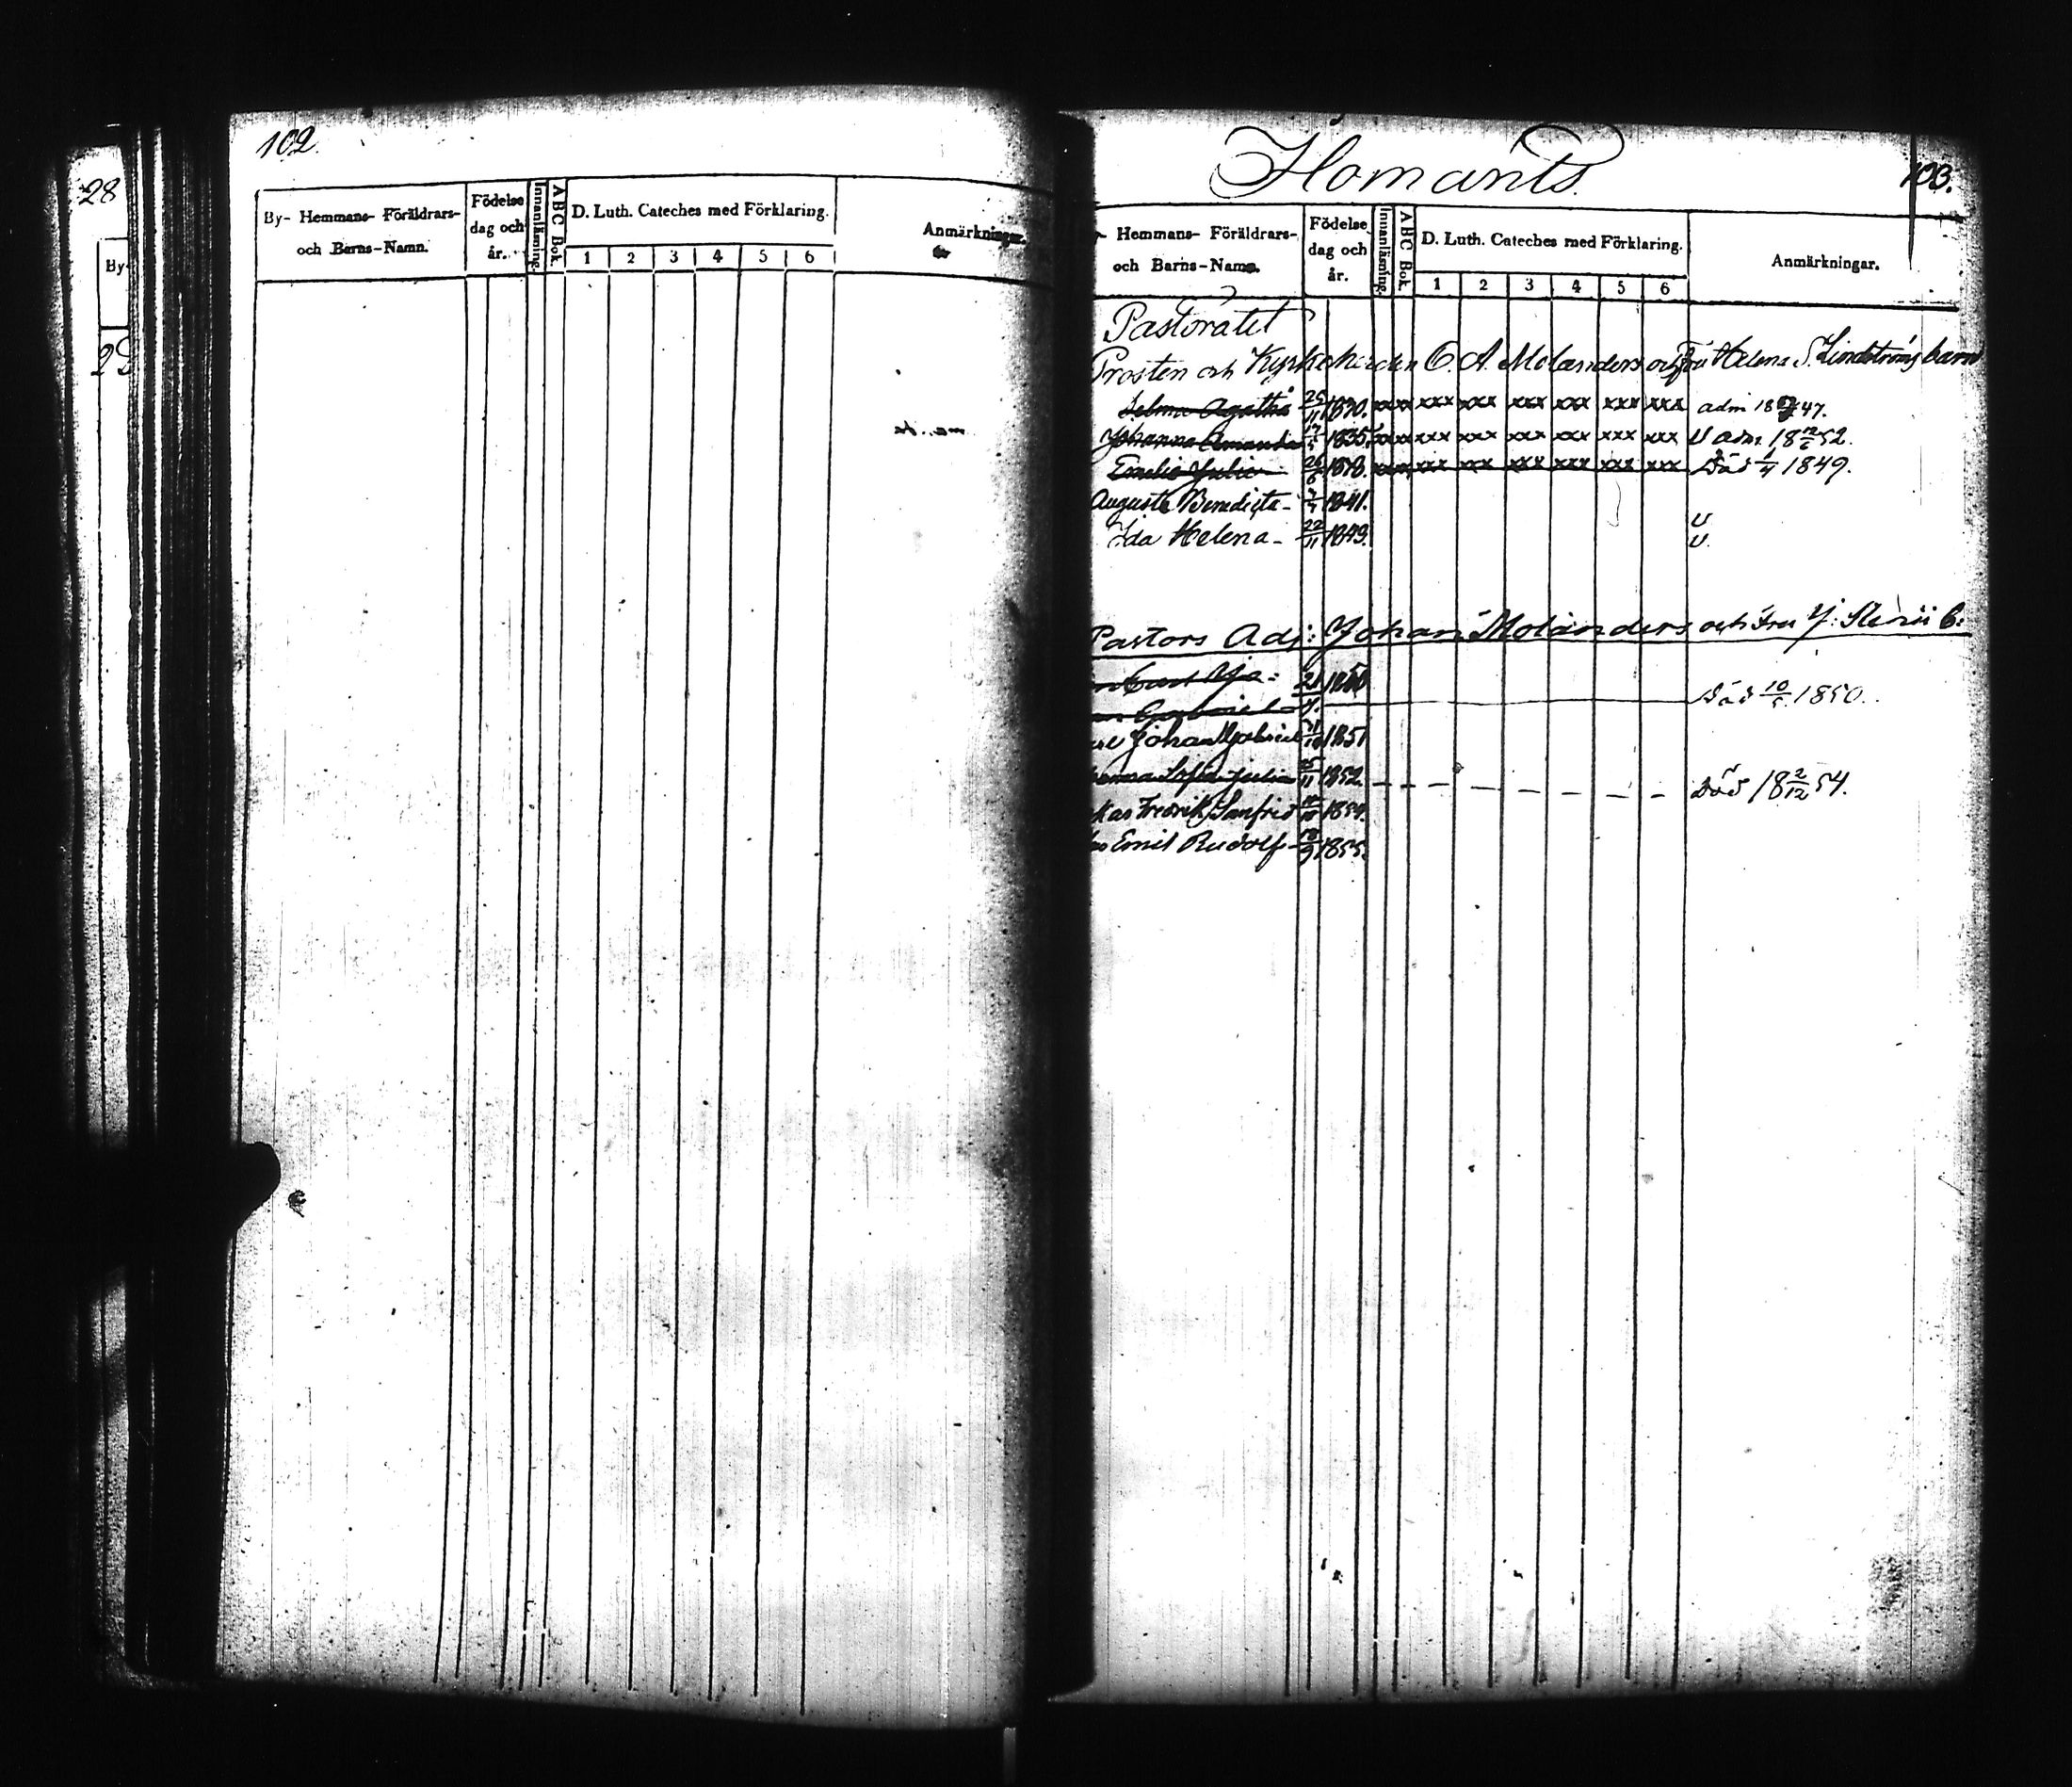 28
By-
102.
By- Hemmans- Föräldrars- och Barns-Namn.
Födelse dag och år.
Innanläsning.
ABC Bok.
D. Luth. Cateches med Förklaring.
1 2 3 4 5 6
Anmärkningar.
Homants
103.
Hemmans- Föräldrars- och Barns-Namn.
Födelse dag och år.
Innanläsning.
ABC Bok.
D. Luth. Cateches med Förklaring.
1 2 3 4 5 6
Anmärkningar.
Pastoratet
Prosten och Kyrkoherden C. A. Molanders och Fru Helena S. Lindströms barn
Selma Agatha 25/11 1830. xxx xxx xxx xxx xxx xxx adm 1847.
Johanna Amanda 1835. xxx xxx xxx xxx xxx xxx U adm. 52.
Emelie Julie 26/6 xxx xxx xxx xxx xxx xxx Död 1/4 1849.
Augusta Benedicta 1841. U
Ida Helena 22/11 1843. U.
Pastors Adj: Johan Molanders och Fru
Carl 21 Död 10/5 1850.
Gabriel
Johan Gabriel 1851
Sofia Julia 25/11 1852. Död 18 2/12 54.
Fredrik Sanfrid 1854.
Emil Rudolf 1855.